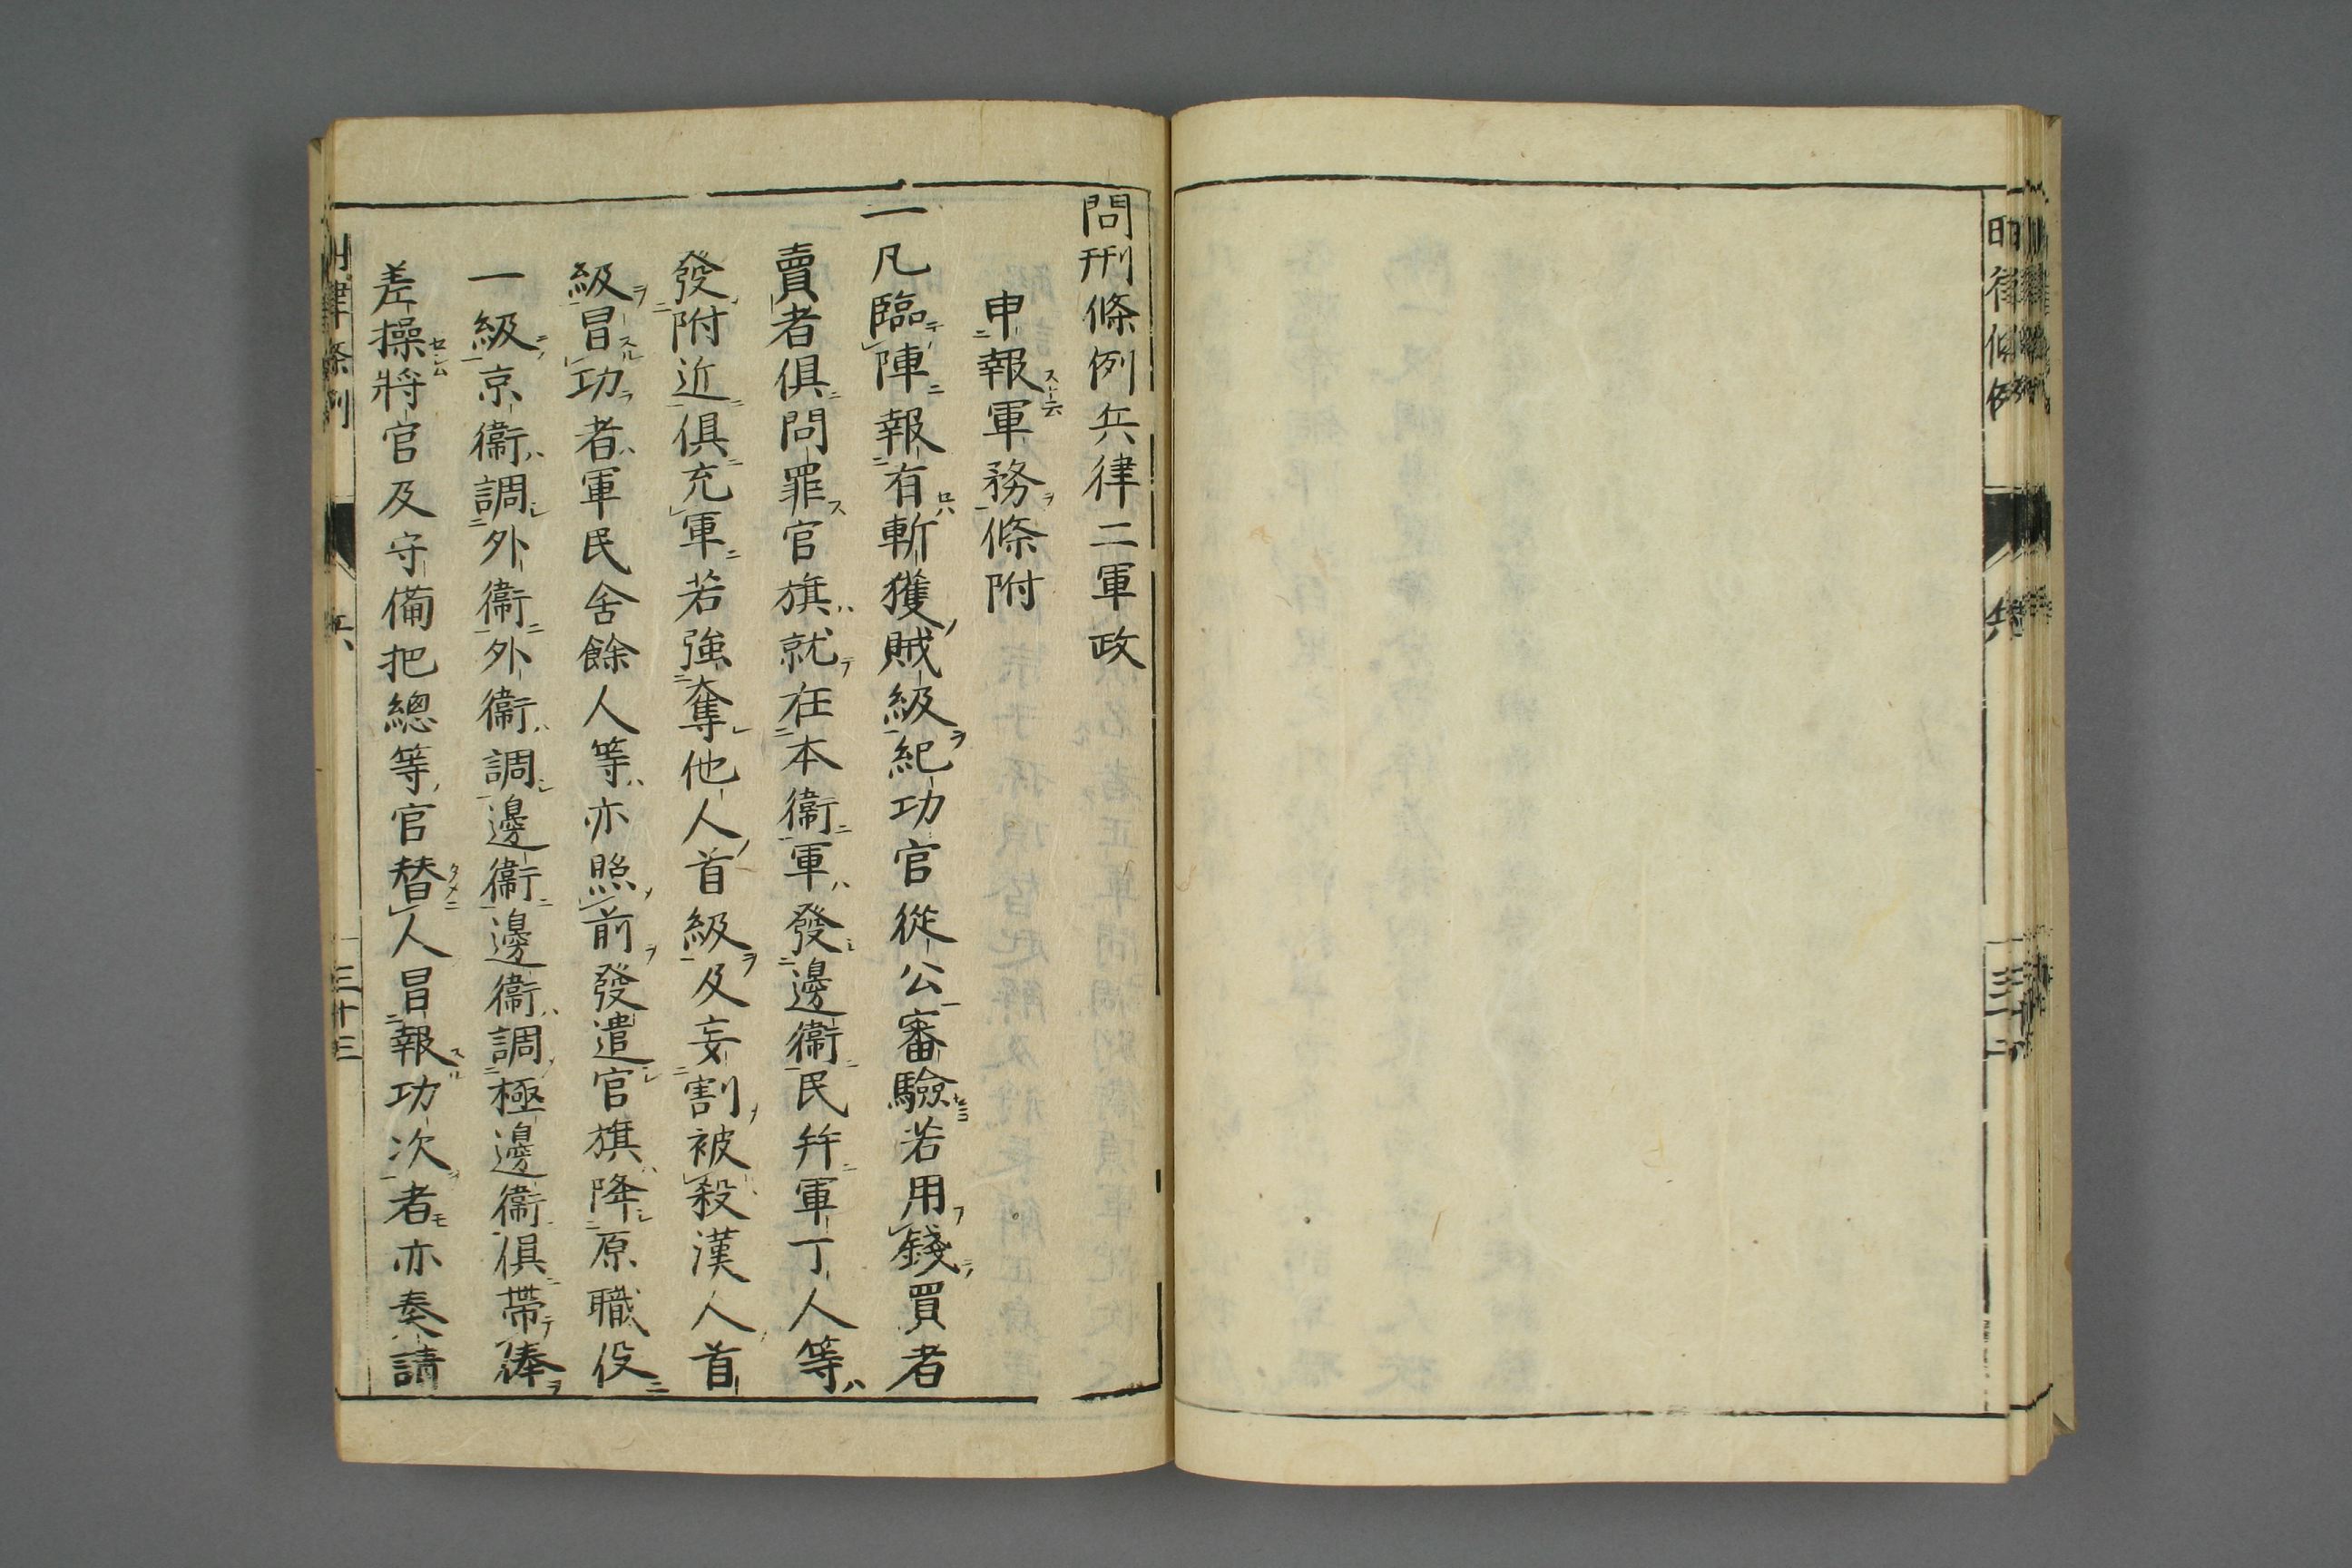 問刑條例兵律二軍政
申報軍務條附
一凡臨陣報有斬獲賊級紀功官從公審驗若用錢買者
賣者俱問罪官旗就在本衞軍發邊衞民幷軍丁人等
發附近俱充軍若強奪他人首級及妄割被殺漢人首
級冒功者軍民舍餘人等亦照前發遣官旗降原職役
一級京衞調外衞外衞調邊衞邊衞調極邊衞俱帶俸
差操將官及守備把總等官替人冒報功次者亦奏請
三十三